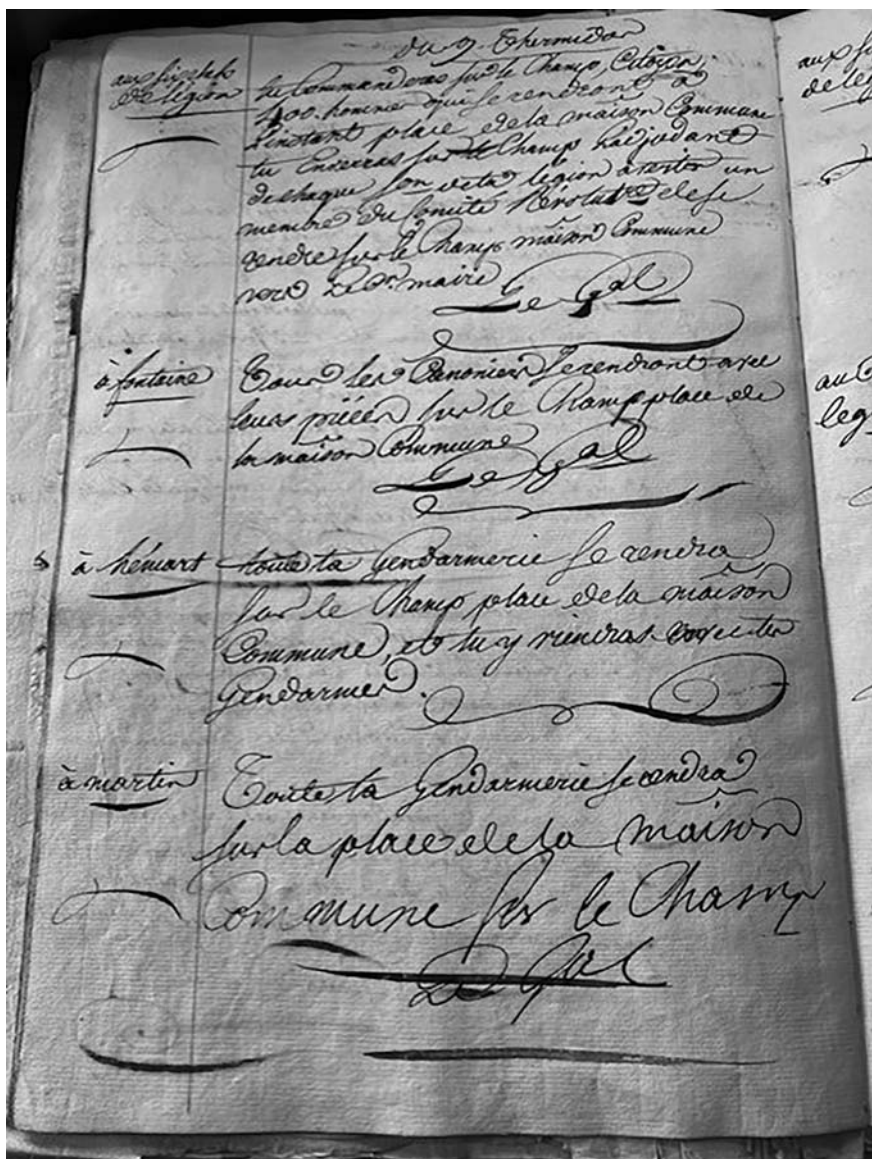 du 9 Thermidor
aux six chefs
de légion
tu Commanderas sur le Champ, Citoyen,
400 hommes qui se rendront à
L'instant place de la maison Commune
tu Enverras sur le Champ L'adjudant
de chaque son de ta légion a rester un
membre du Comité Révolut.re et se
rendre sur le Champ maison Commune
vers Le Cn. maire
Le Gal
à fontaine
Tous les Canoniers se rendront avec
leurs pièces sur le Champ place de
la maison Commune
Le Gal
à hémart
toute ta Gendarmerie se rendra
sur le Champ place de la maison
Commune, et tu y viendras avec tes
Gendarmes.
à martin
Toute ta Gendarmerie se rendra
sur la place de la maison
Commune sur le Champ
Le Gal
aux si
de leg
au C
leg